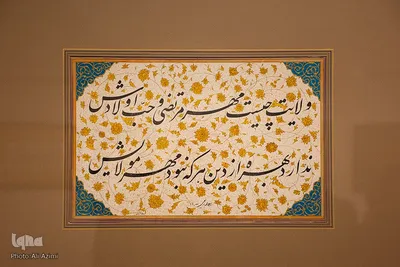 ولایت چیست مهر مرتضی و حب اولادش
ندارد بهره از دین هر که نبود مهر مولایش
iqna
Photo: Ali Azimi